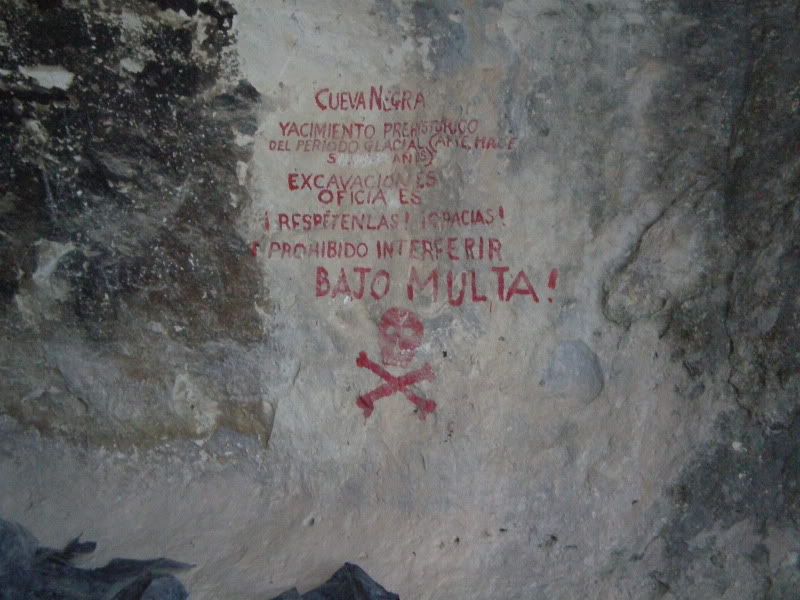 CUEVA NEGRA
YACIMIENTO PREHISTÓRICO
DEL PERIODO GLACIAL HACE
EXCAVACIONES
OFICIA ES
¡RESPÉTENLAS! ¡GRACIAS!
PROHIBIDO INTERFERIR
BAJO MULTA!